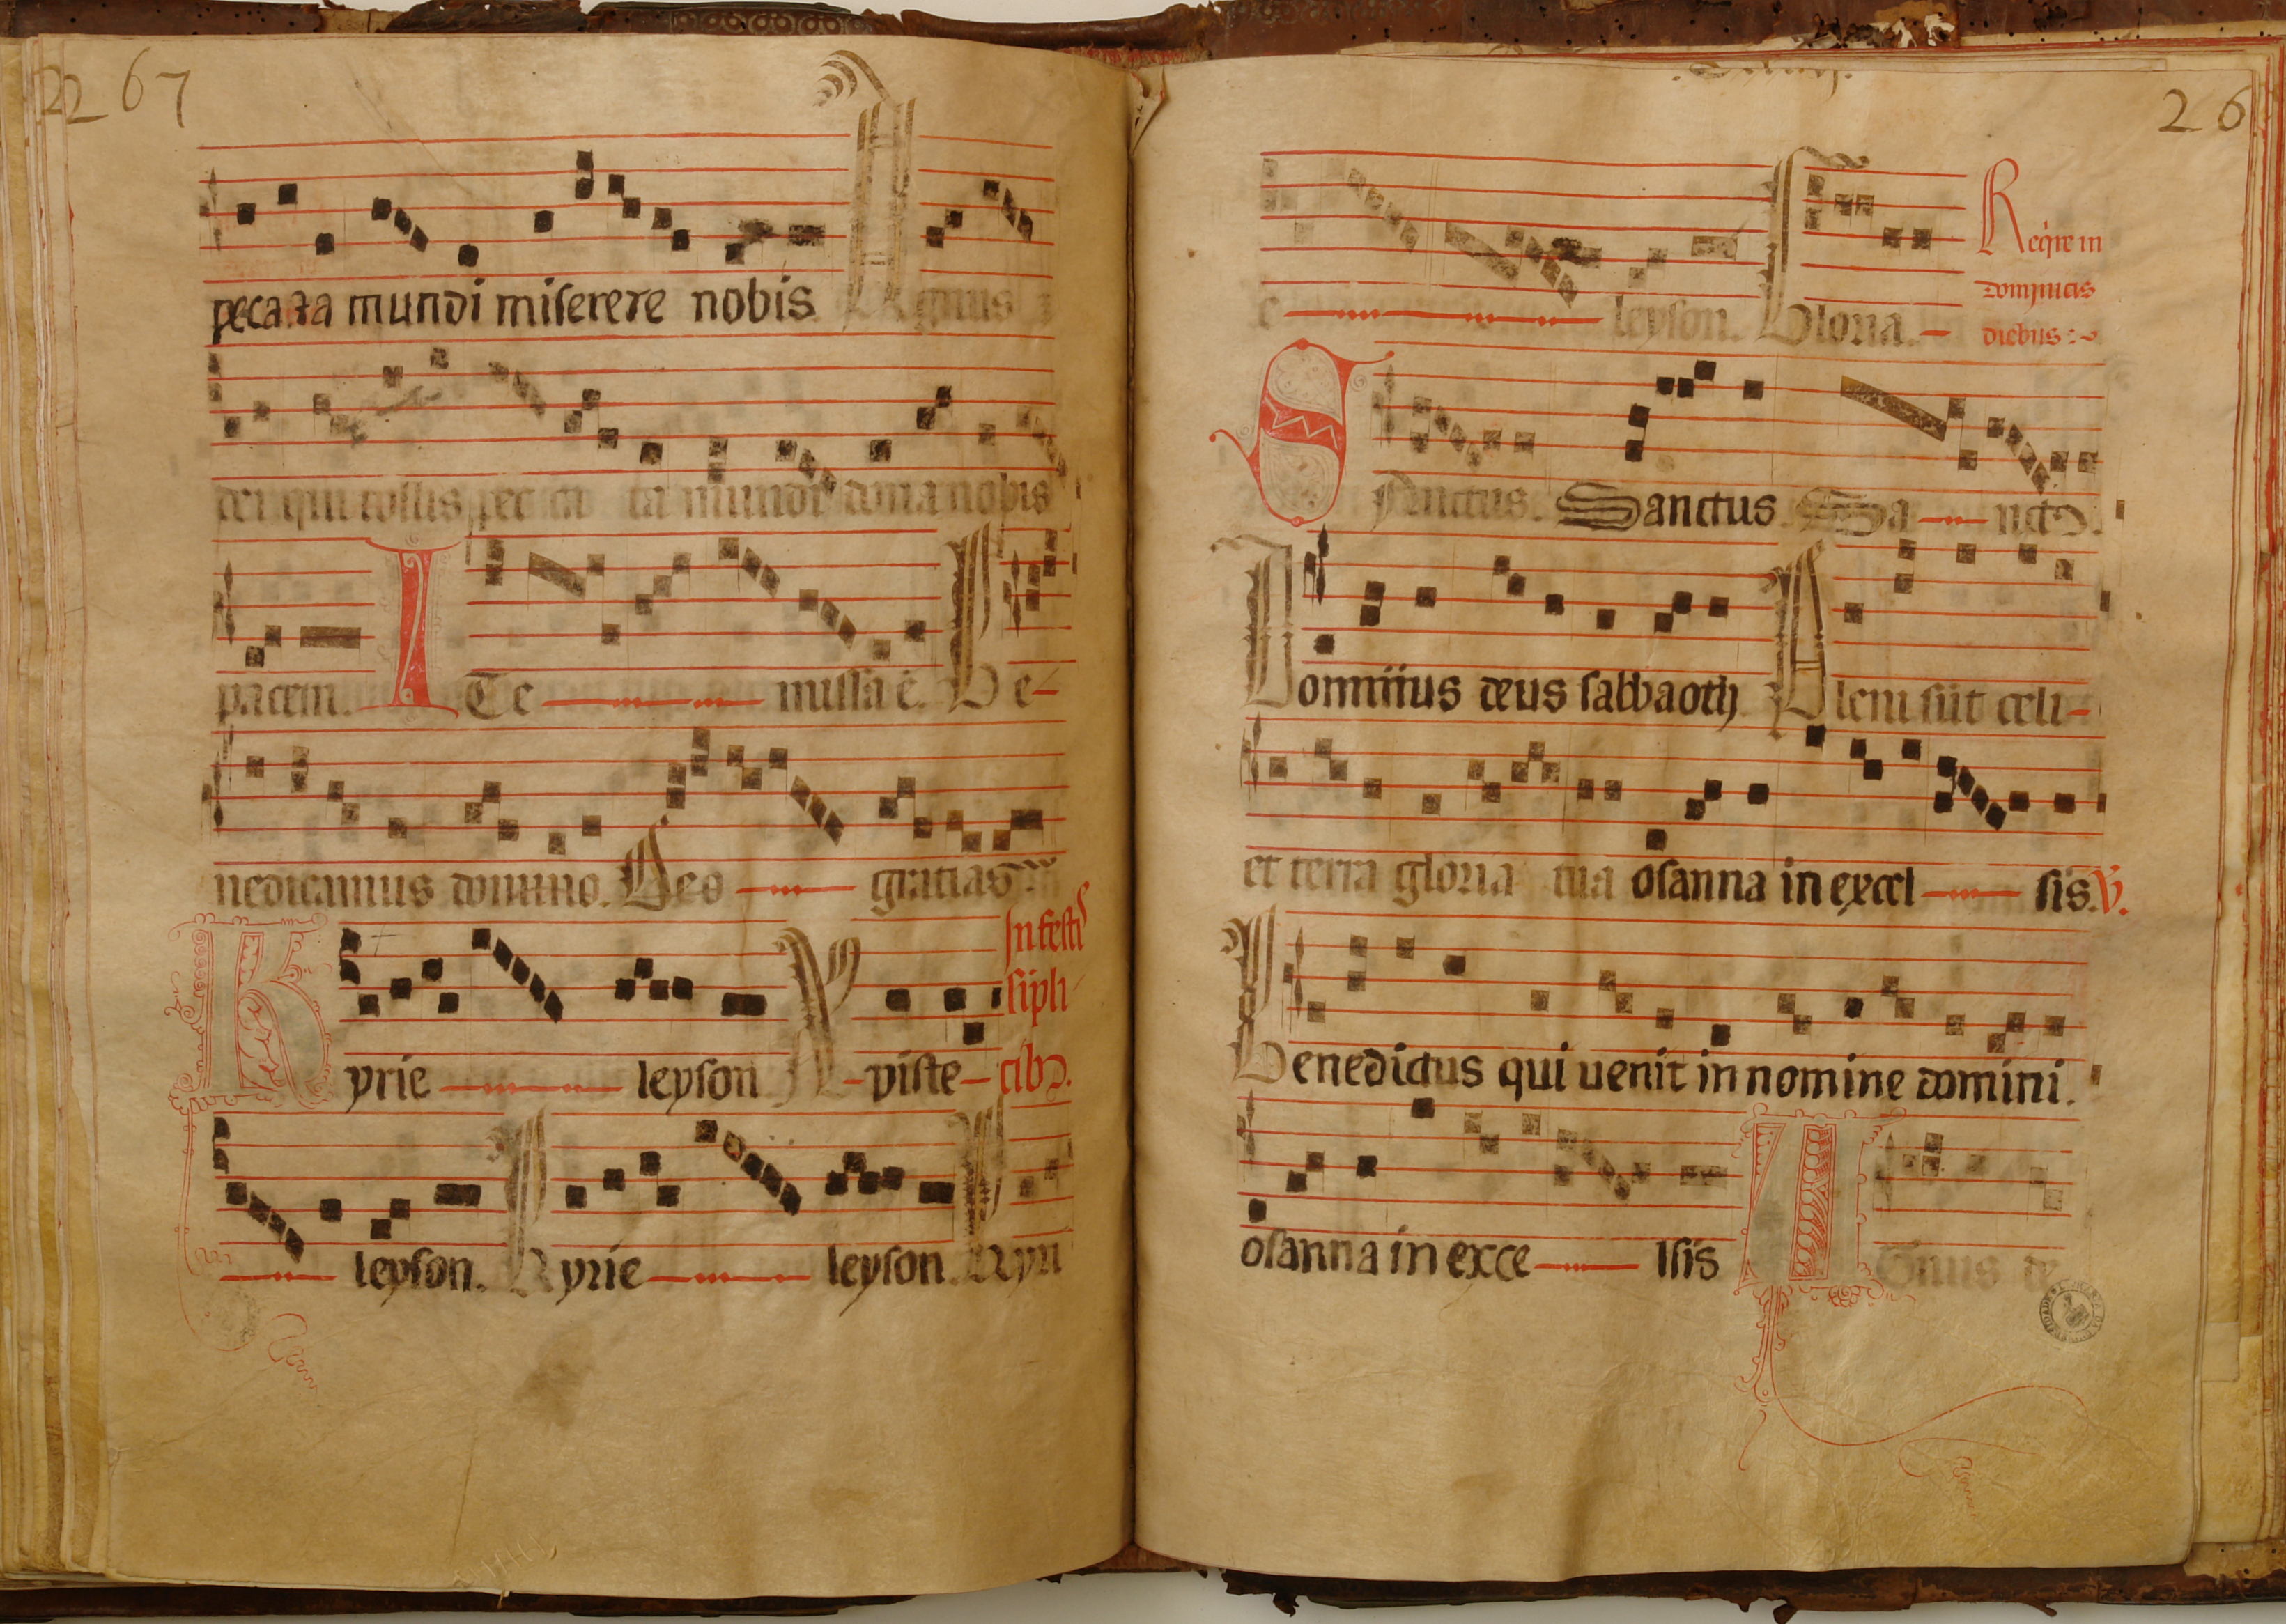 22 67
pecata mundi miserere nobis. Agnus
dei qui tollis pecca ta mundi dona nobis
pacem. ITe missa ē. Be-
nedicamus domino. Deo gratias
In festis
sipli
Kyrie leyson Xpiste- cibꝫ.
leyson. Kyrie leyson. Kyri
26
e leyson. Gloria.
Reqꝛe in
dominicis
diebus
Sanctus. Sanctus Sa nctꝰ.
Dominus deus sabbaoth Pleni sūt celi-
et terra gloria tua osanna in excel sis. V.
Benedictus qui uenit in nomine domini.
osanna in exce lsis Agnus de